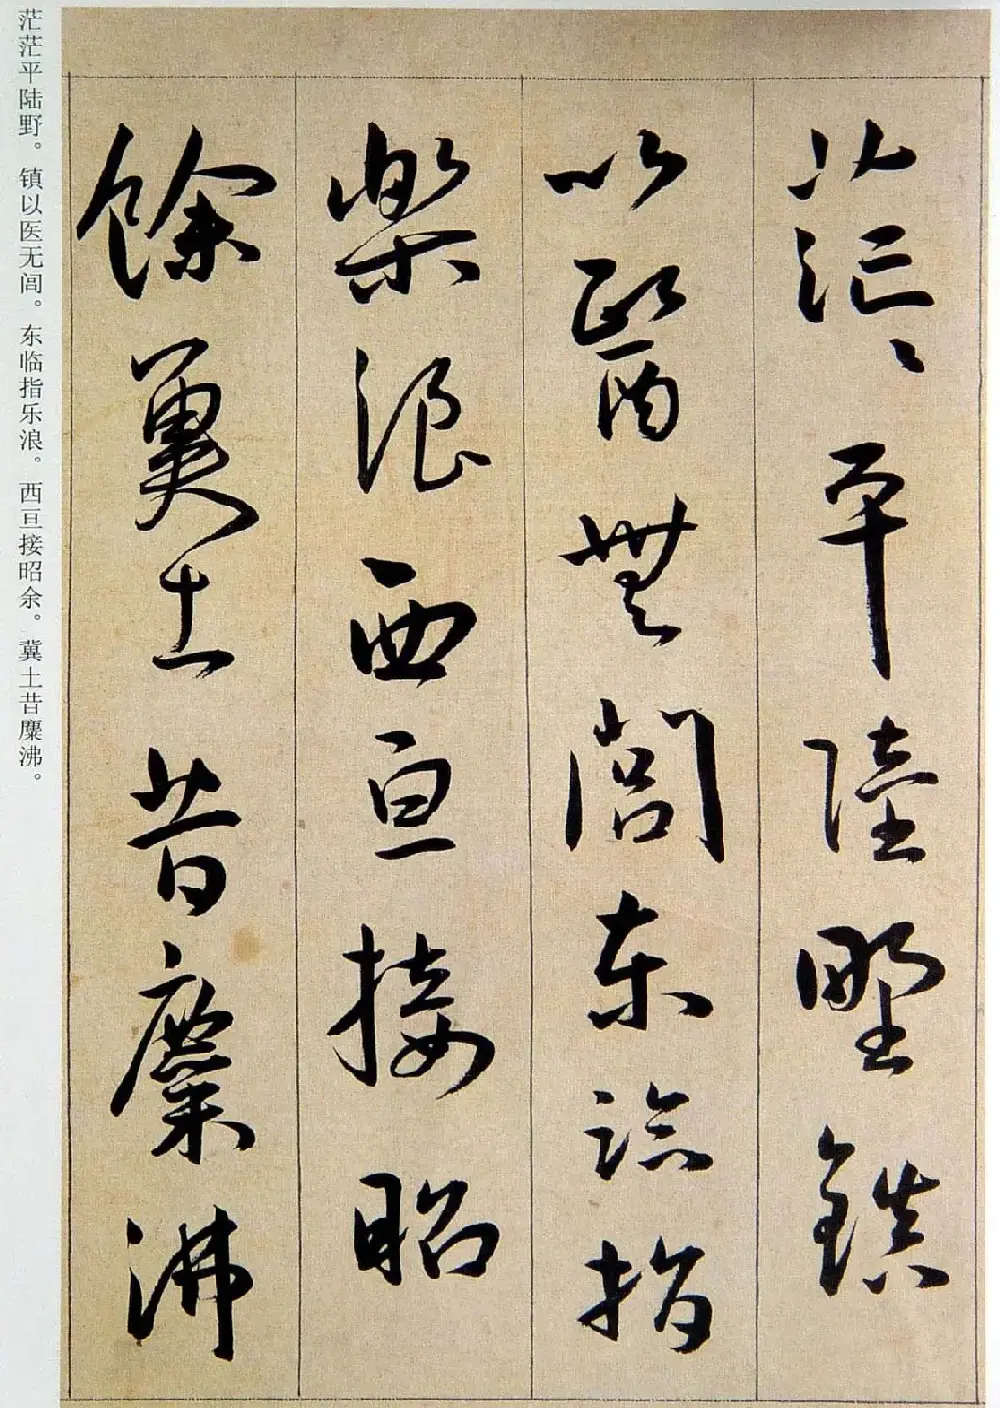 茫々平陸野鎮
以醫無閭東臨指
樂浪西亘接昭
餘冀土昔麋沸
茫茫平陆野。镇以医无闾。东临指乐浪。西亘接昭余。冀土昔麋沸。